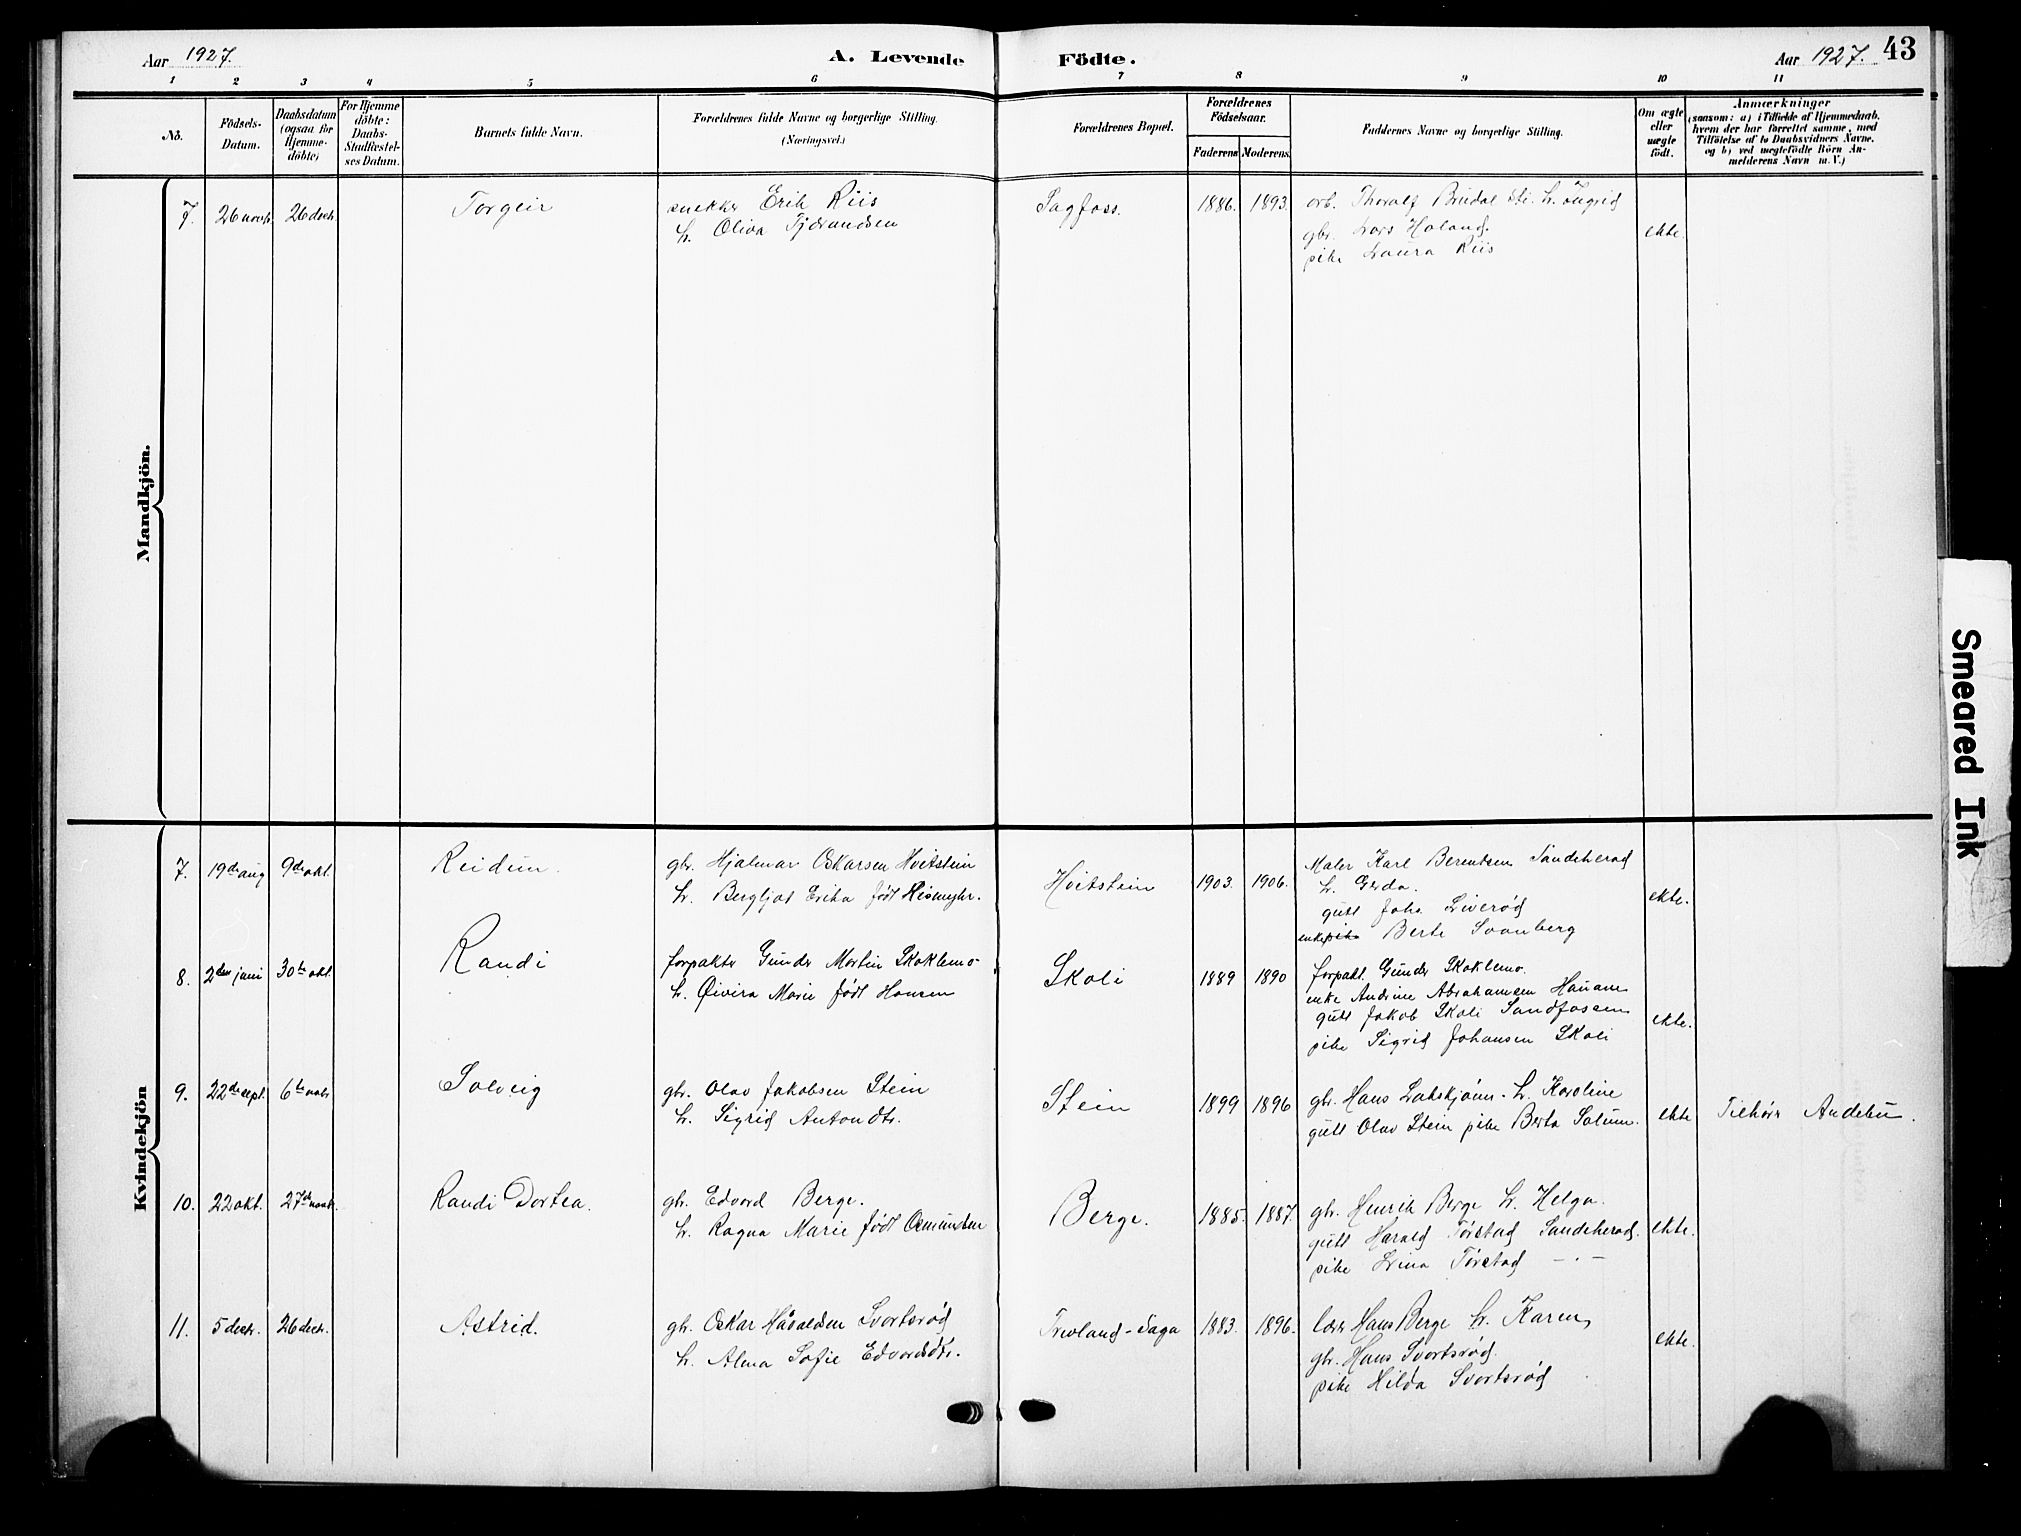 Aar 1927. A. Levende Födte. Aar 1927. 43
1 2 3 4 5 6 7 8 9 10 11
No.
Födsels-Datum.
Daabsdatum (ogsaa for Hjemme-döbte)
For Hjemme döbte: Daabs-Stadfæstel-ses Datum.
Barnets fulde Navn.
Forældrenes fulde Navne og borgerlige Stilling. (Næringsvei.)
Forældrenes Bopæl.
Forældrenes Födselsaar.
Faderens Moderens
Faddernes Navne og borgerlige Stilling.
Om ægte eller uægte födt.
Anmærkninger
(saasom: a) i Tilfælde af Hjemmedaab, hvem der har forrettet samme, med Tilföielse af to Daabsvidners Navne. og b) ved uægtefödte Börn An-melderens Navn m. V.)
Mandkjön.
7. 26 novbr. 26 decbr. Torgeir
snekker Erik Riis
h. Oliva Tjdrandsen
Sagfoss. 1886. 1893.
arb. Thoralf Brudal h. Ingrid
gbr. Lars Holand.
pike Laura Riis
ekte.
Kvindekjön
7. 19de aug 9de okt. Reidun.
gbr. Hjalmar Oskarsen Hvitstein
h. Bergljot Erika født Heimyhr.
Hvitstein 1903. 1906.
Maler Karl Berentsen Sandeherad
h. Gerda.
gutt Joh. Liverød
enke Berte Svanberg
ekte.
8. 2den juni 30te okt. Randi
forpakter Gunder Martin Skoklemo
h. Øivira Marie født Hansen
Skoli 1889 1890
forpakt. Gunder Skoklemo.
enke Andrine Abrahamsen Hauam
gutt Jakob Skoli Sandfossen
pike Sigrid Johansen Skoli
ekte.
9. 22de sept. 6te novbr. Solveig
gbr. Olav Jakobsen Stein
h. Sigrid Antondtr.
Stein 1899 1896
gbr. Hans Lakskjønn. h. Karoline
gutt Olav Stein pike Berta Solum.
ekte Tilhører Andebu.
10. 22 okt. 27de novbr. Randi Dortea.
gbr. Edvard Berge.
h. Ragna Marie født Osmundsen
Berge. 1885. 1887.
gbr. Henrik Berge h. Helga.
gutt Harald Tørstad Sandeherad.
pike Lina Tørstad — . —
ekte.
11. 5 decbr. 26 decbr. Astrid.
gbr. Oskar Håvaldsen Svartsrød
h. Alma Sofie Edvardsdtr.
Trevland-Saga 1883. 1896.
lærer Hans Berge h. Karen
gbr. Hans Svartsrød.
pike Hilda Svartsrød
ekte.
Smeared Ink